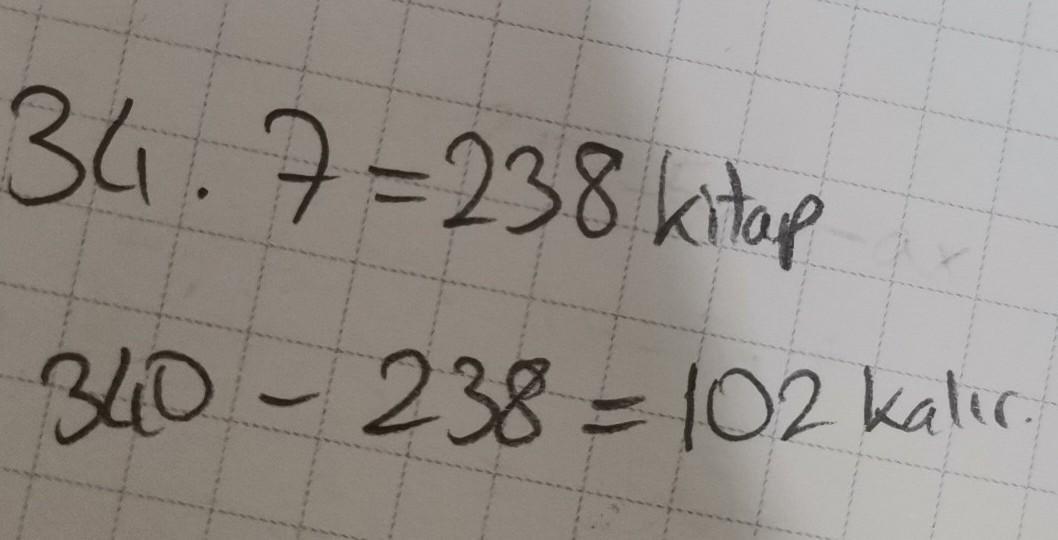 34 . 7 = 238 kitap
340 - 238 = 102 kalır.